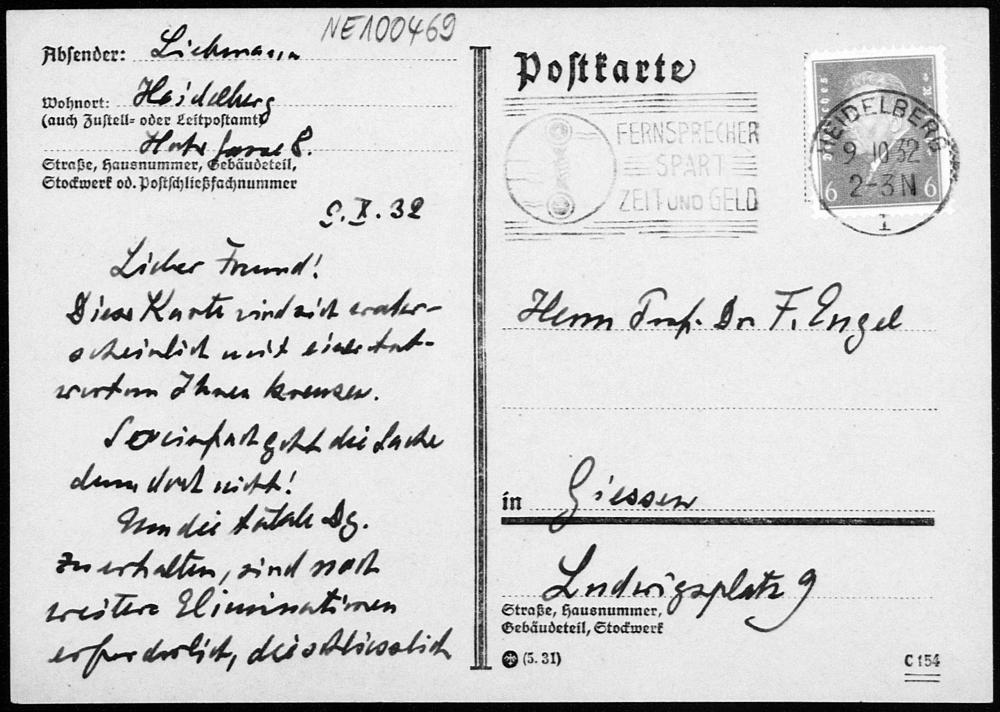 NE100469
Absender: Liebmann
Wohnort: Heidelberg
(auch Zustell- oder Leitpostamt)
8.
Straße, Hausnummer, Gebäudeteil,
Stockwerk od. Postschließfachnummer
9. X. 32
Lieber Freund!
Diese Karte wird sich wahr-
scheinlich mit einer Ant-
wort von Ihnen kreuzen.
So einfach geht die Sache
denn doch nicht!
Um die totale Dg.
zu erhalten, sind noch
weitere Eliminationen
erforderlich, die schliesslich
Postkarte
FERNSPRECHER
SPART
ZEIT UND GELD
HEIDELBERG
9.10.32
2-3 N
1
6 6
Herrn Prof. Dr. F. Engel
in Giessen
Ludwigsplatz 9
Straße, Hausnummer,
Gebäudeteil, Stockwerk
(5. 31)
C 154